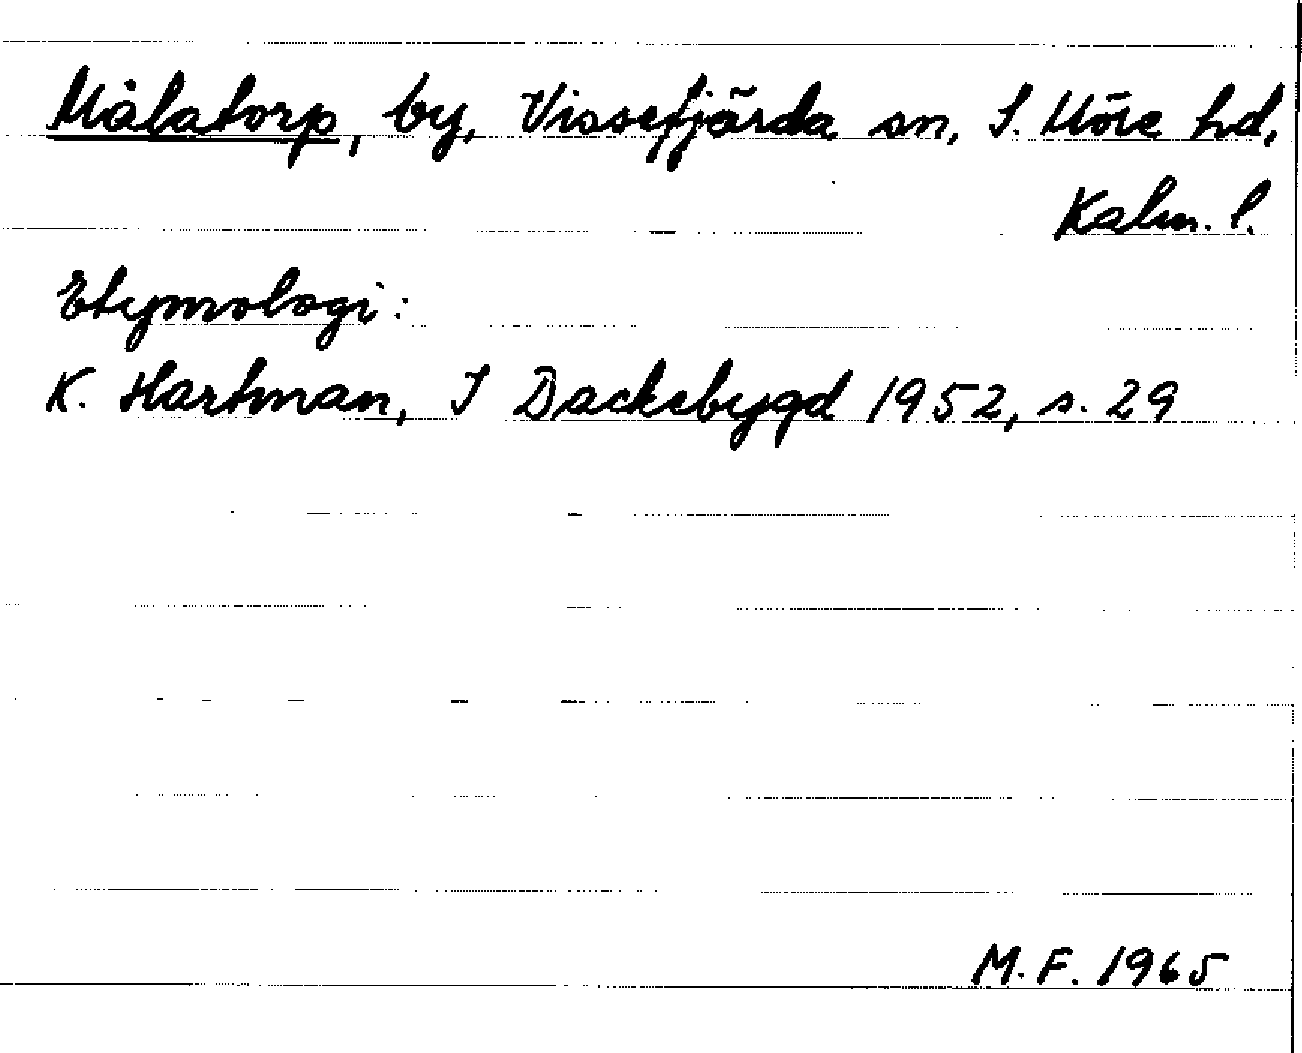 Målatorp, by, Vissefjärda sn, S. Möre hd,
Kalm. l.
Etymologi:
K. Hartman, I Dackebygd 1952, s. 29
M.F. 1965